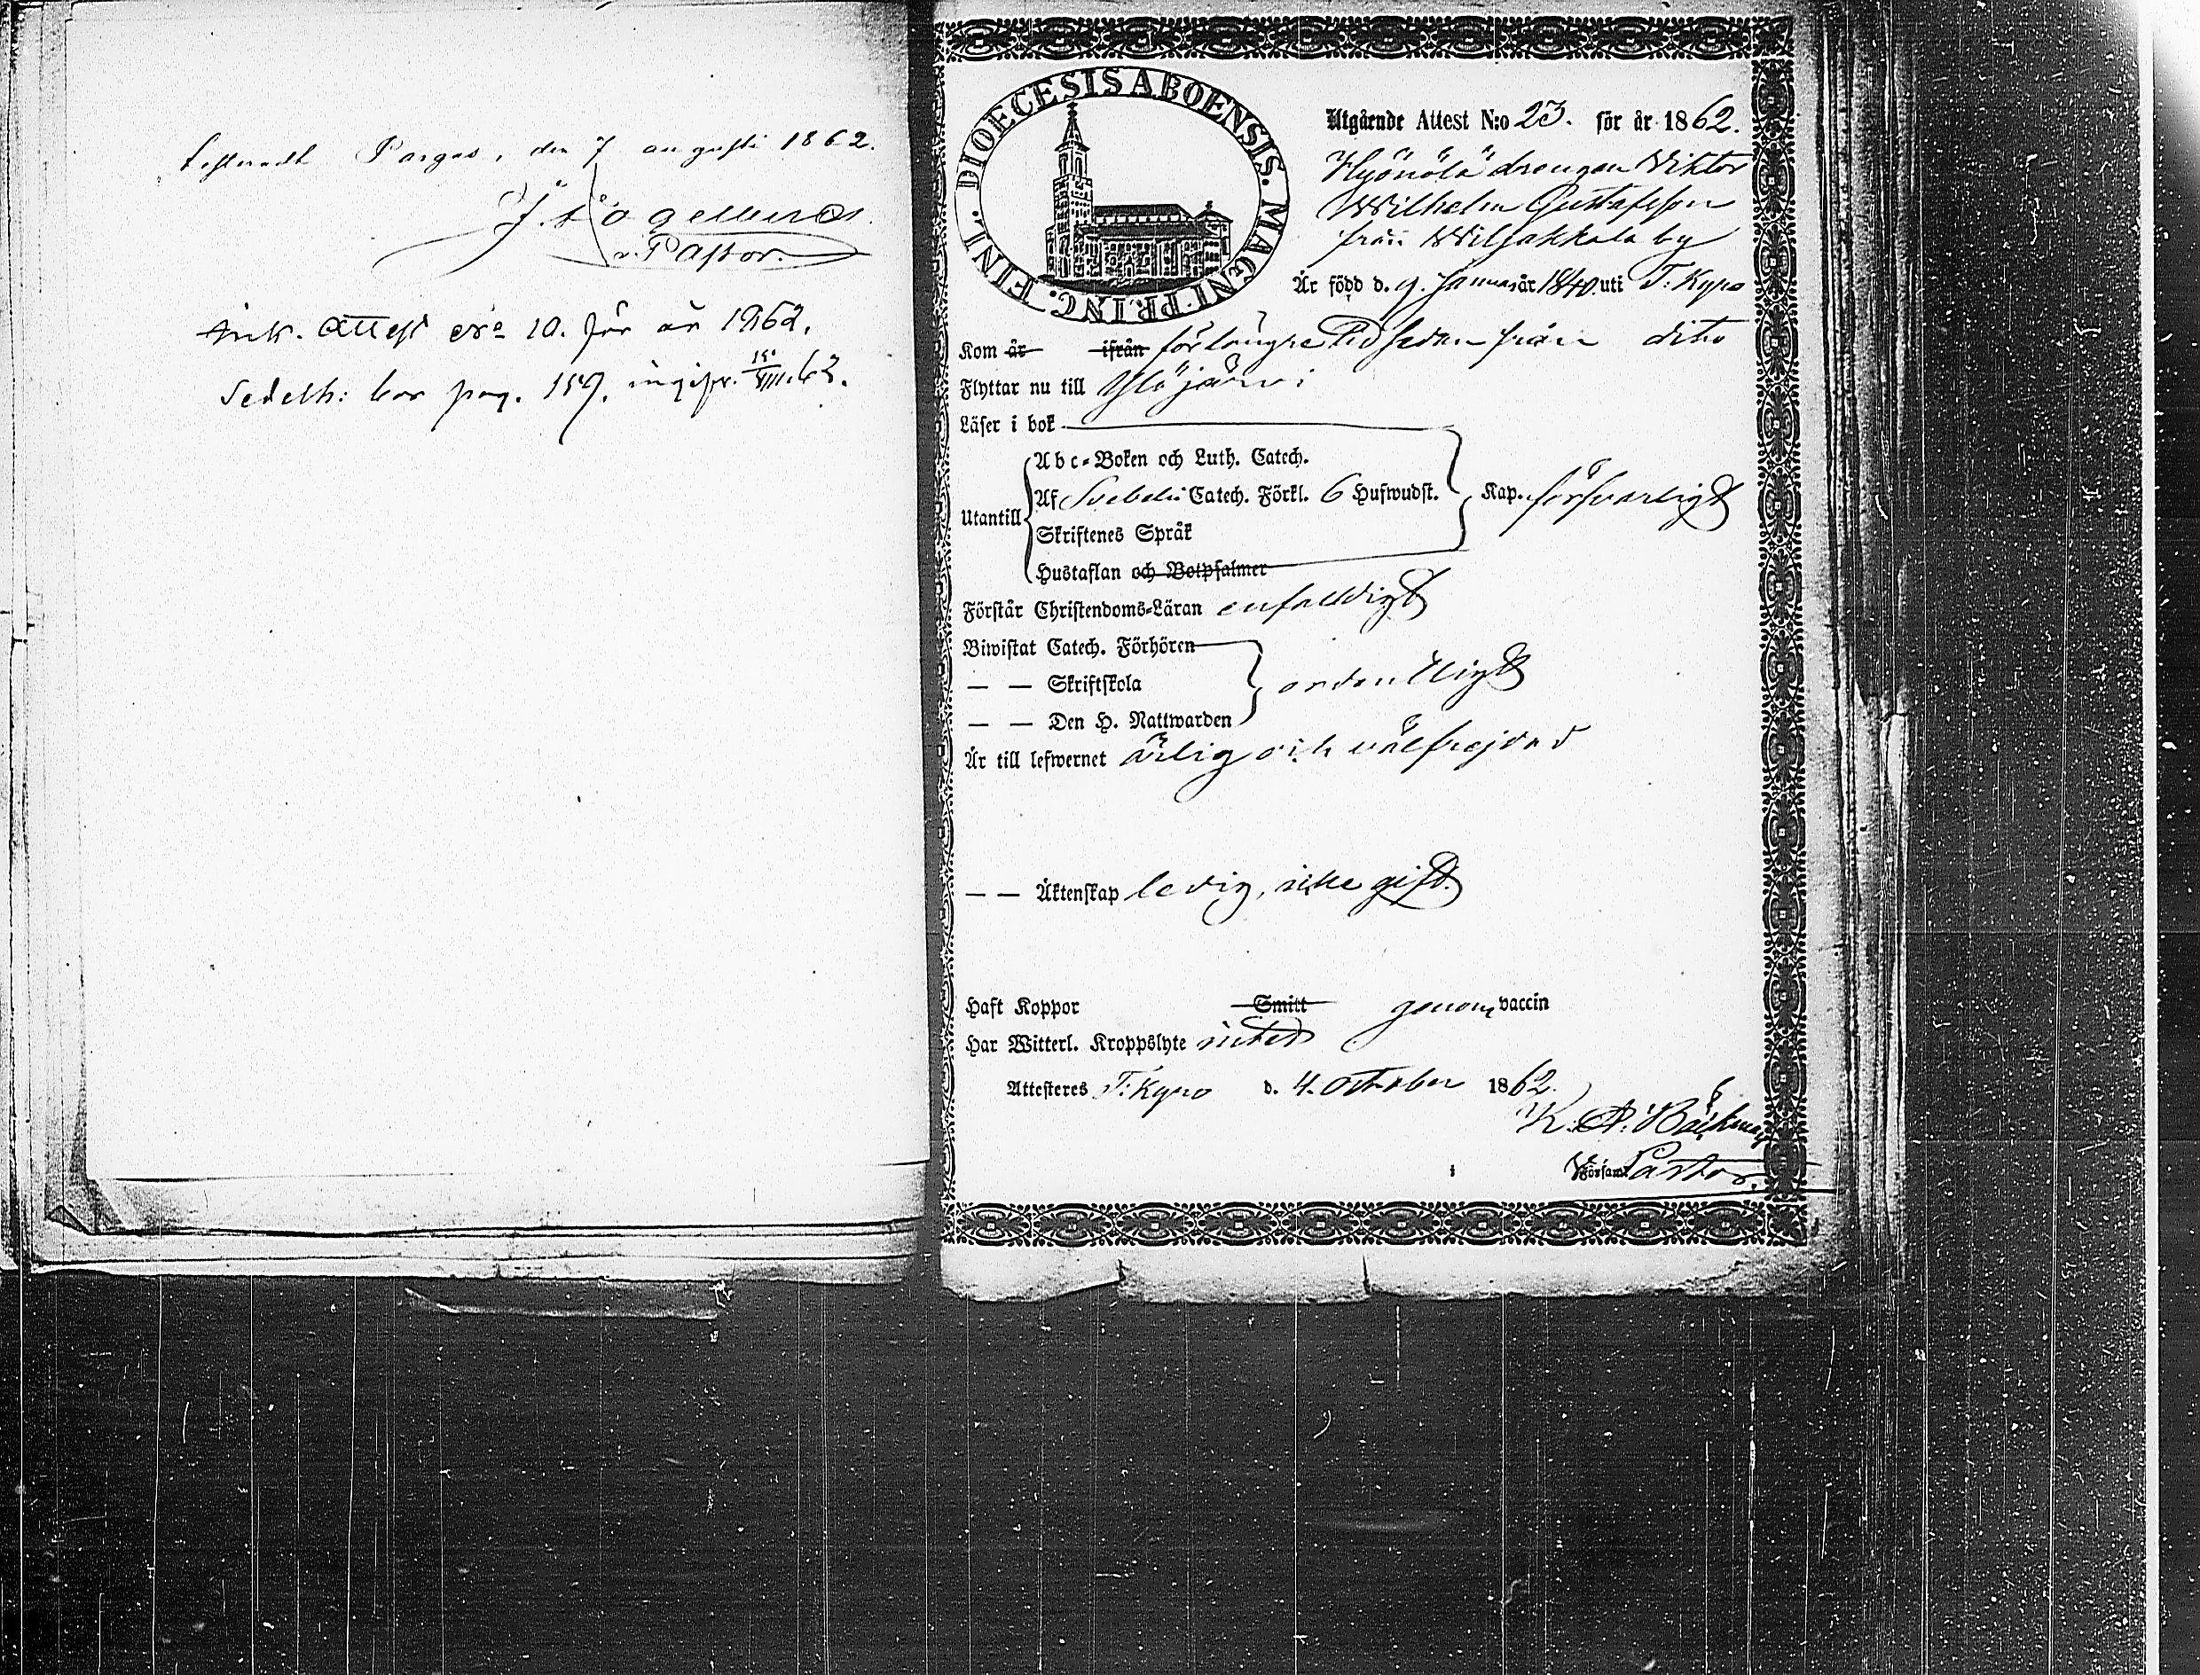 Pargas, den 7 augusti 1862.
v. Pastor.
Ank. Attest No 10. för år 1862.
Sedelb: bar pag. 159.
DIOECESIS ABOENSIS. MAGNI PRINC. FINL.
Utgående Attest N:o 23. för år 1862.
Hyönölä drengen Viktor
Wilhelm Gustafsson
från Wiljakkala by
Är född d. 9. Januari år 1840 uti T: Kyro
Kom år ifrån för längre tid sedan från dito
Flyttar nu till Ylöjärvi
Läser i bok
Utantill
Abc-Boken och Luth. Catech.
Af Svebelii Catech. Förkl. 6 Hufwudst. Kap. försvarligt
Skriftenes Språk
Hustaflan och Botpsalmer
Förstår Christendoms-Läran enfaldigt
Biwistat Catech. Förhören
— — Skriftskola ordentligt
— — Den H. Nattwarden
Är till lefwernet ärlig och välfrejdad
— — Äktenskap ledig, icke gift.
Haft Koppor Smitt genom vaccin
Har Witterl. Kroppslyte intet
Attesteres T: Kyro d. 4. October 1862.
K. A. Bäckman
V Församl Pastor.